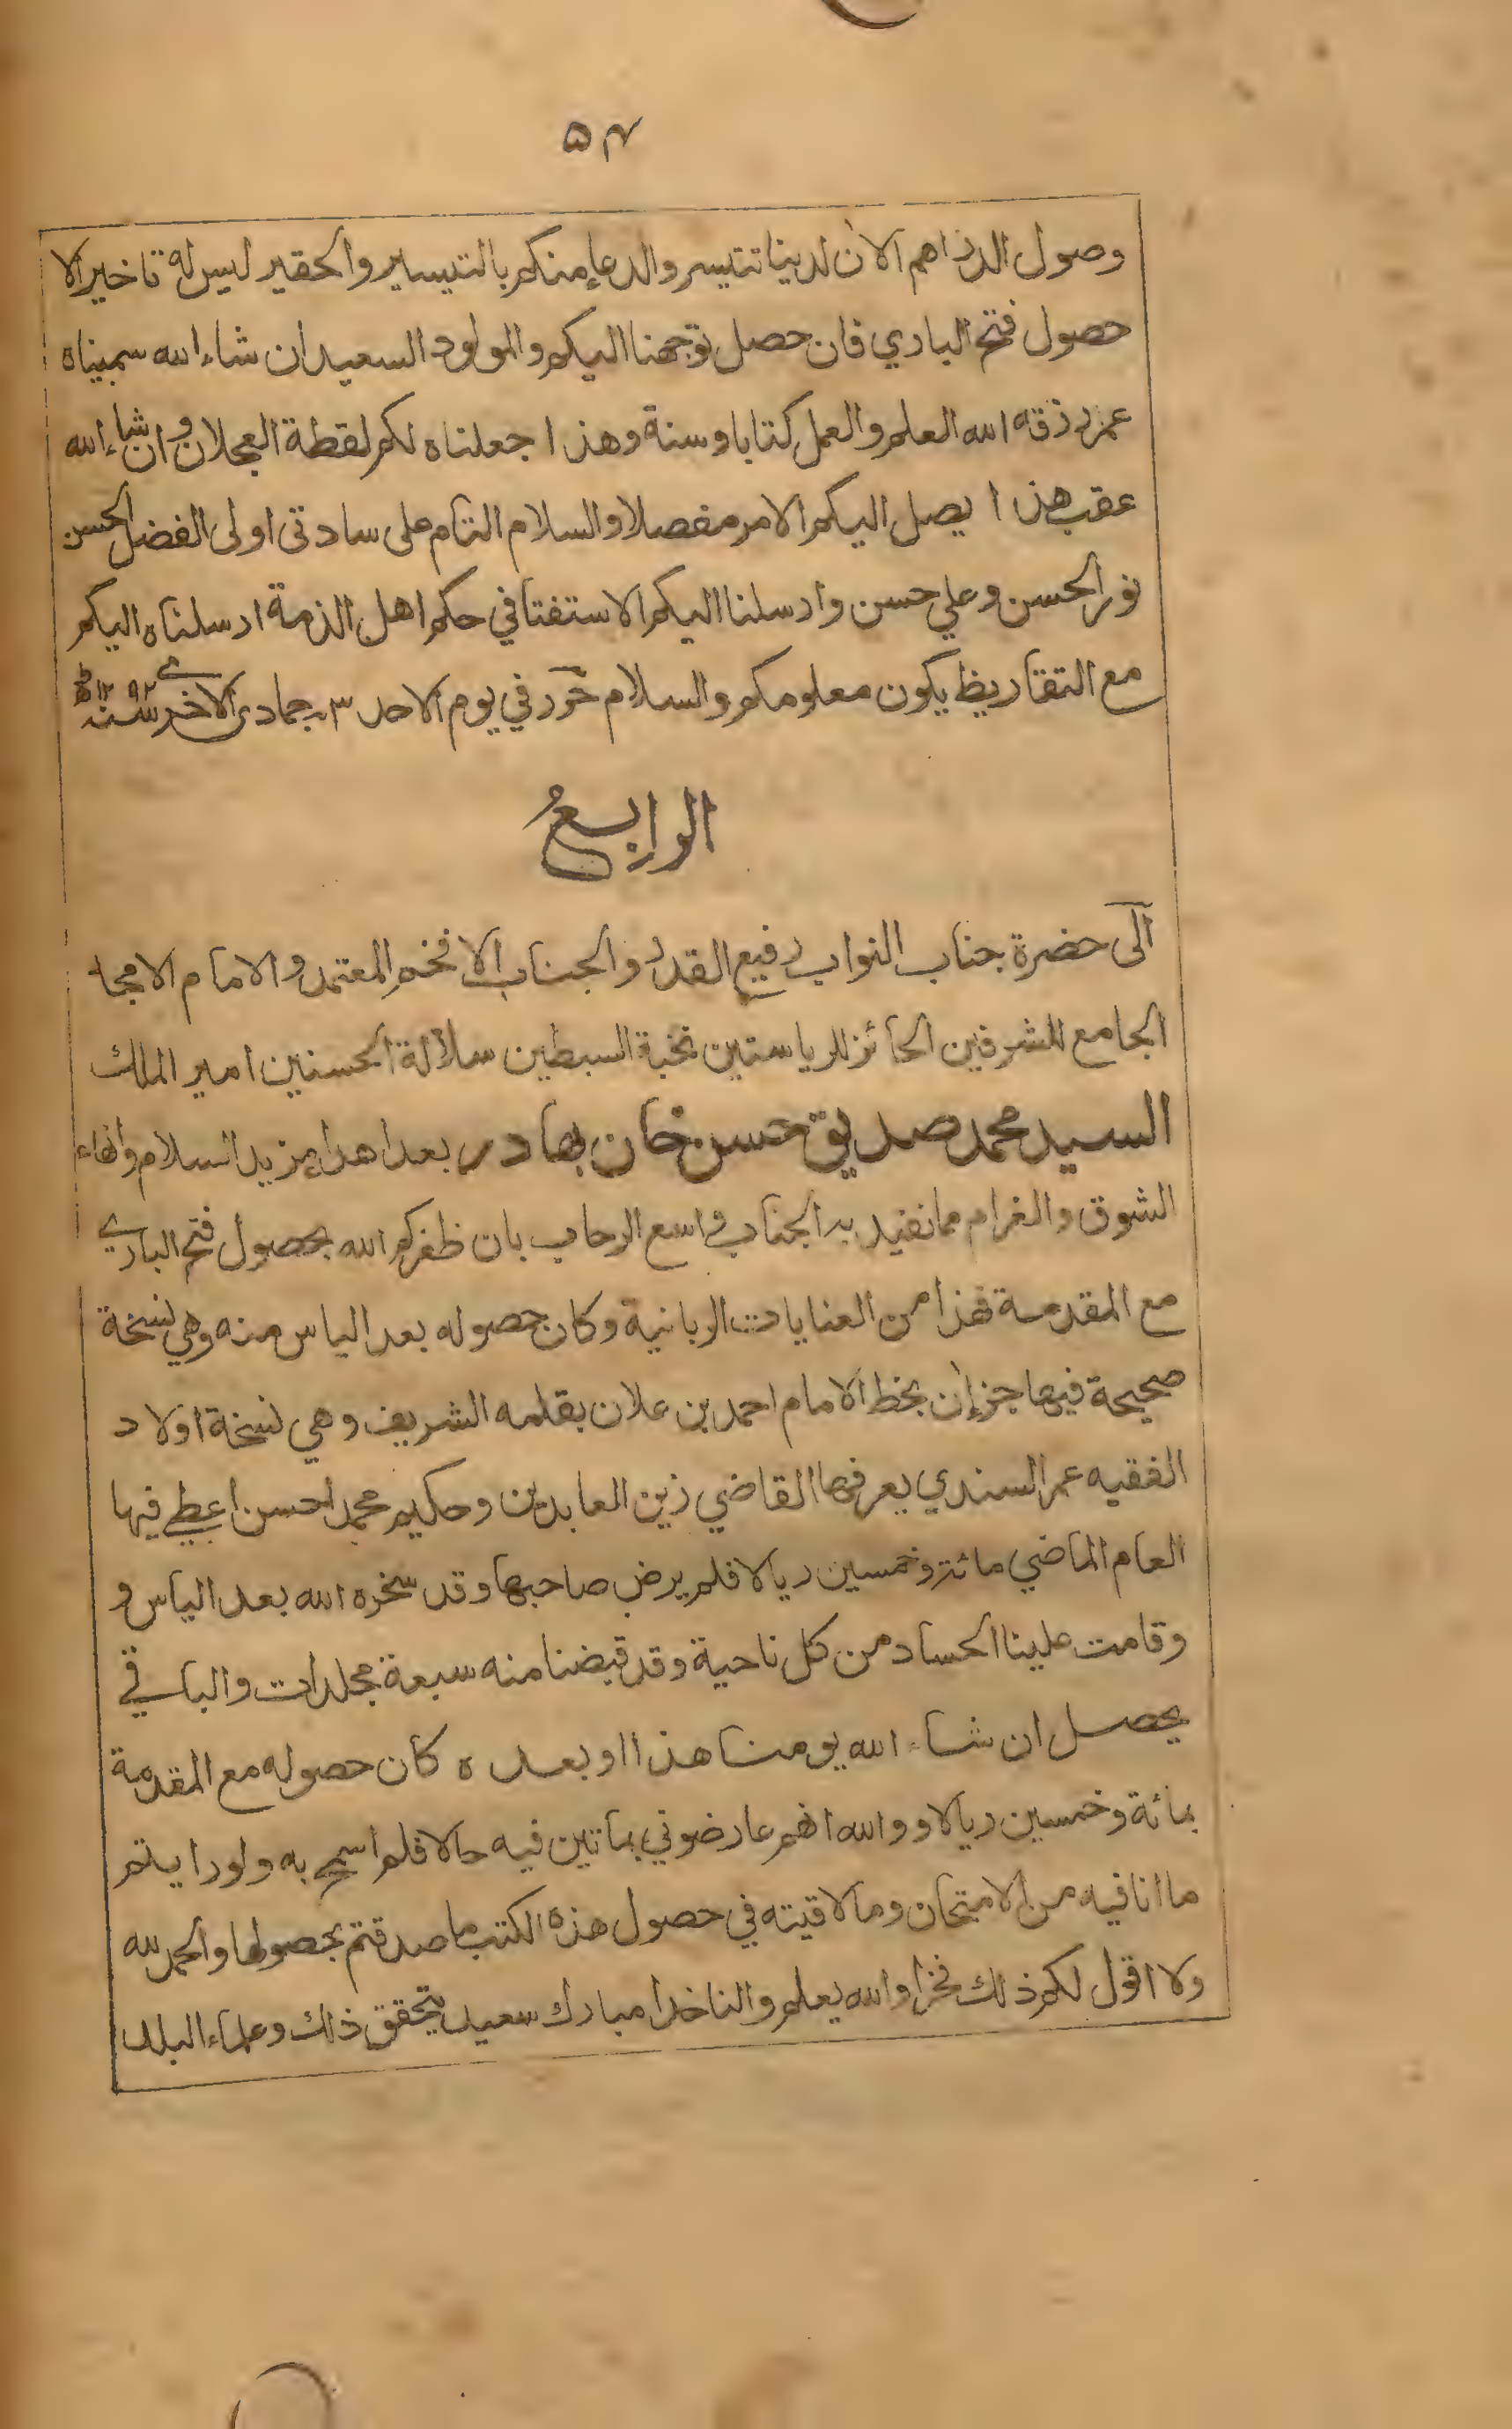 ٥٤
وصول الدراهم الان لدينا تتيسر والدعاء منكم بالتيسير والحقير ليس له تاخير الا
حصول فتح الباري فان حصل توجهنا اليكم والمولود السعيد ان شاء الله سميناه
عمر رزقه الله العلم والعمل كتابا وسنة وهذا جعلناه لكم لقطة العجلان وان شاء الله
عقب هذا يصل اليكم الامر مفصلا والسلام التام على سادتي اولى الفضل الحسن
نور الحسن وعلي حسن وارسلنا اليكم الاستفتا في حكم اهل الذمة ارسلناه اليكم
مع التقاريظ يكون معلومكم والسلام حرر في يوم الاحد ٣ جمادى الاخرى سنة ١٢٩٢ھ
الرابعُ
الى حضرة جناب النواب رفيع القدر والجناب الافخم المعتمد والامام الامجد
الجامع للشرفين الحائز للرياستين نخبة السبطين سلالة الحسنين امير الملك
السيد محمد صديق حسن خان بهادر بعد اهداء مزيد السلام وانهاء
الشوق والغرام مما نفيد به الجناب واسع الرحاب بان ظفركم الله بحصول فتح الباري
مع المقدمة فهذا من العنايات الربانية وكان حصوله بعد الياس منه وهي نسخة
صحيحة فيها جزءان بخط الامام احمد بن علان بقلمه الشريف وهي نسخة اولاد
الفقيه عمر السندي يعرفها القاضي زين العابدين وحكيم محمد احسن اعطي فيها
العام الماضي مائة وخمسين ريالا فلم يرض صاحبها وقد سخره الله بعد الياس و
وقامت علينا الحساد من كل ناحية وقد قبضنا منه سبعة مجلدات والباقي
يحصل ان شاء الله يومنا هذا او بعده كان حصوله مع المقدمة
بمائة وخمسين ريالا ووالله انهم عارضوني بماتين فيه حالا فلم اسمح به ولو رايتم
ما انا فيه من الامتحان وما لاقيته في حصول هذه الكتب ما صدقتم بحصولها والحمد لله
ولا اقول لكم ذلك فخرا والله يعلم والناخدا مبارك سعيد يتحقق ذلك وعلماء البلد